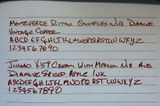 Monteverde Ritma Omniflex Nib Diamine
Vintage Copper
ABCDEFGHIJKLMNOPQRSTUVWXYZ
1234567890
Jinhao X159 Cream With Medium Nib And
Diamine Spiced Apple Ink
ABCDEFGHIJKLMNOPQRSTUVWXYZ
1234567890